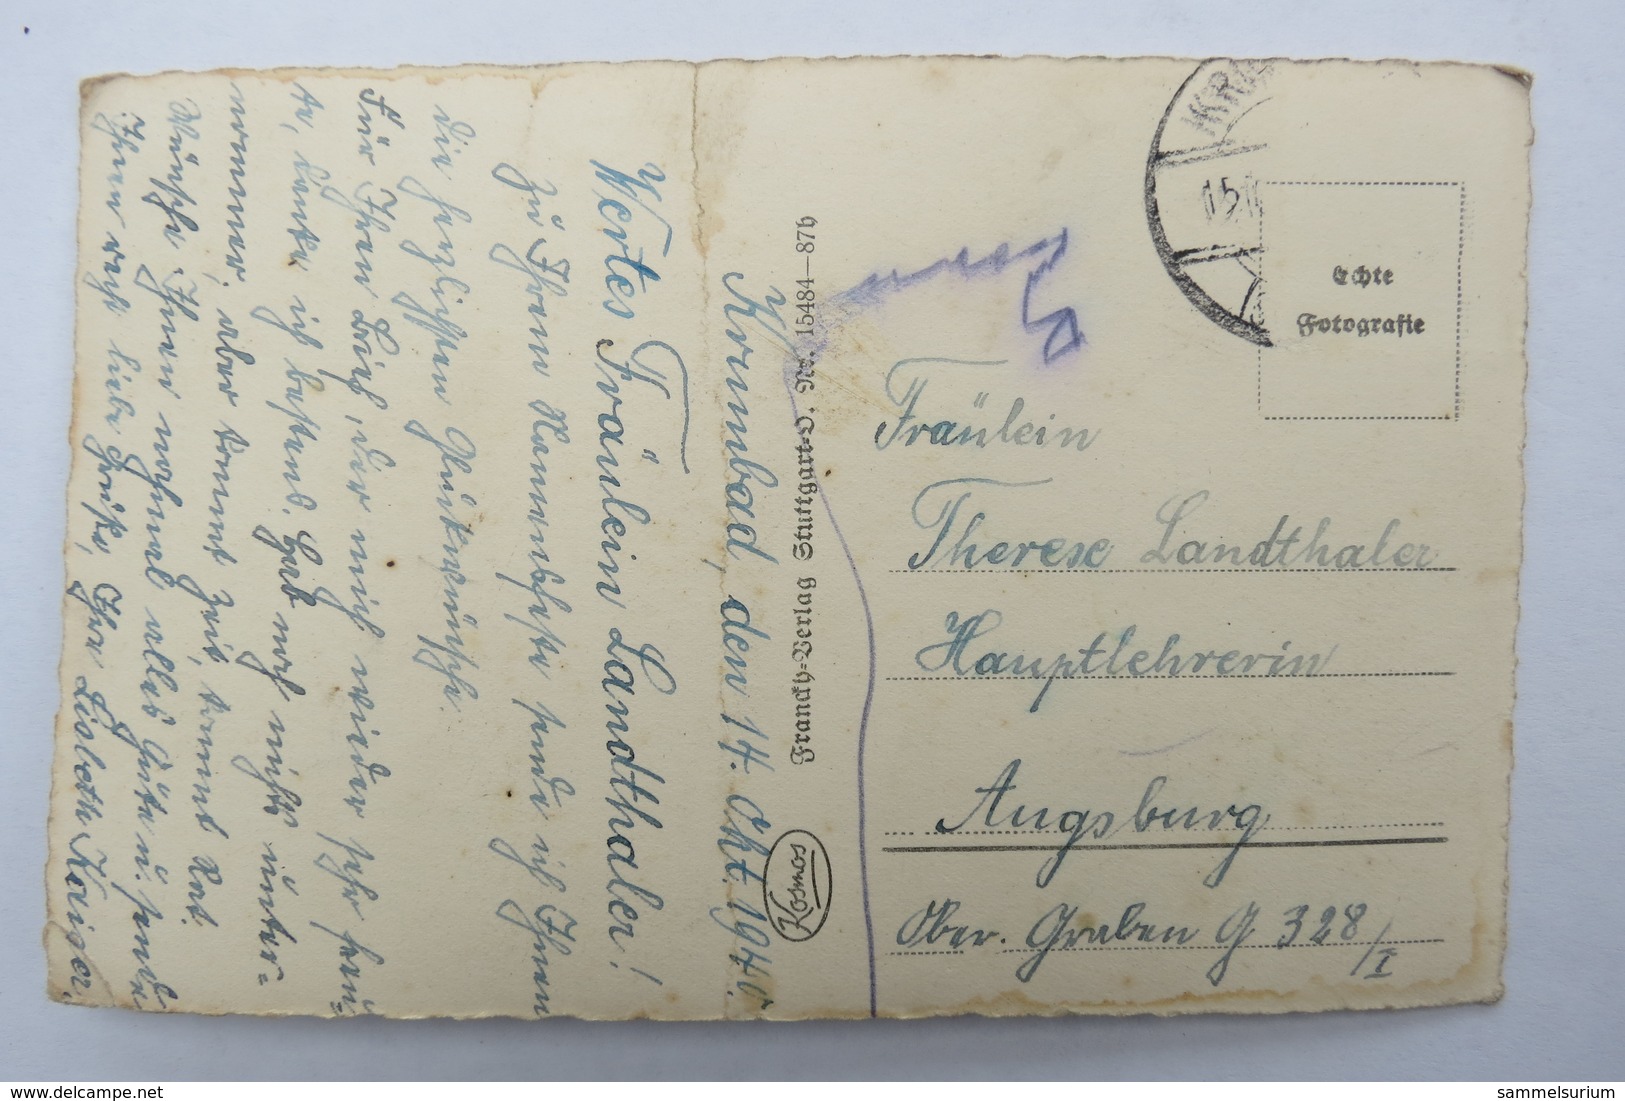 Krumbad, den 14. Okt. 1940.
Wertes Fräulein Landthaler!
Zu Ihrem Namensfeste sende ich Ihnen
die herzlichsten Glückwünsche.
Für Ihren Brief, der mich wieder sehr freu-
te, danke ich bestens. Hab noch nicht unter-
nommen, aber kommt Zeit, kommt Rat.
Wünsche Ihnen nochmal alles Gute u. sende
Ihnen recht liebe Grüße, Ihre Lisbeth Kaiser.
Franckh-Verlag Stuttgart-O. Nr. 15484—87b
Kosmos
KRU
15.1
Echte
Fotografie
Fräulein
Therese Landthaler
Hauptlehrerin
Augsburg
Ober. Graben G 328/I
sammelsurium
delcampe.net